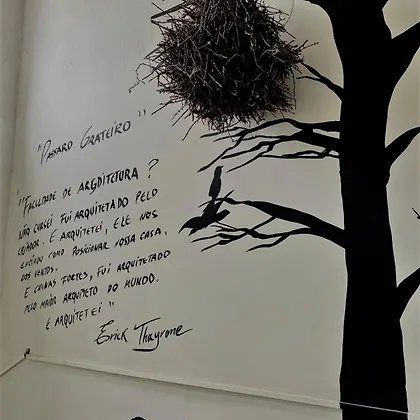 "PASSARO GRATEIRO"
"FACULDADE DE ARQUITETURA?
NÃO CURSEI FUI ARQUITETADO PELO
CRIADOR. E ARQUITETEI, ELE NOS
ENSINOU COMO POSICIONAR NOSSA CASA,
AOS VENTOS.
E CHUVAS FORTES, FUI ARQUITETADO
PELO MAIOR ARQUITETO DO MUNDO.
E ARQUITETEI"
Erick Thayrone